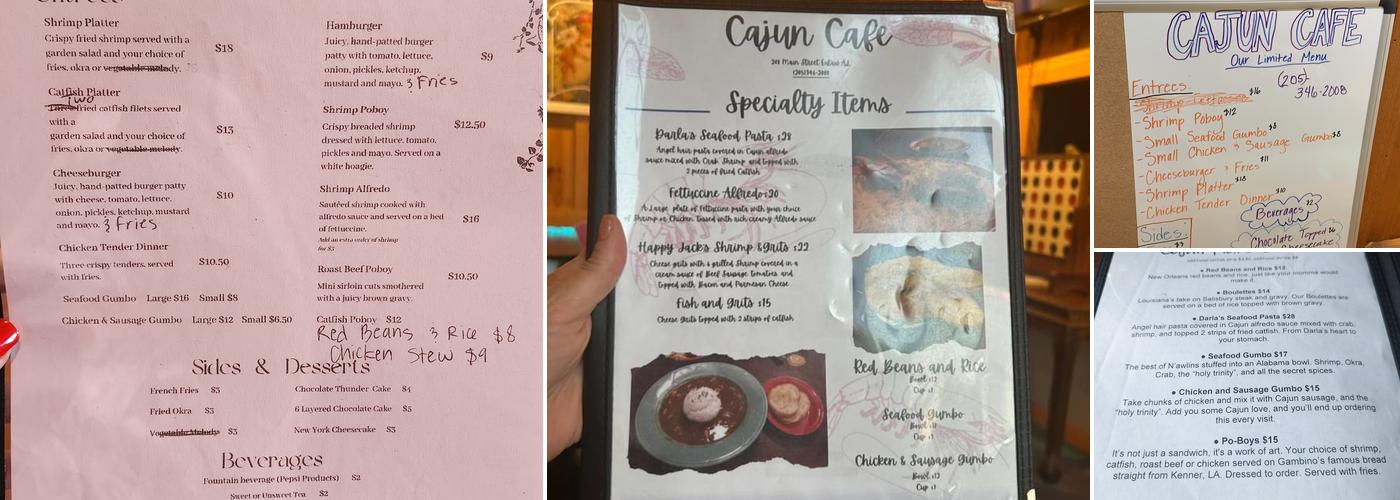 Shrimp Platter
Crispy fried shrimp served with a
garden salad and your choice of
fries, okra or vegetable melody.
$18
Catfish Platter
Two
Three fried catfish filets served
with a
garden salad and your choice of
fries, okra or vegetable melody.
$13
Cheeseburger
Juicy, hand-patted burger patty
with cheese, tomato, lettuce,
onion, pickles, ketchup, mustard
and mayo. & Fries
$10
Chicken Tender Dinner
Three crispy tenders, served
with fries.
$10.50
Seafood Gumbo Large $16 Small $8
Chicken & Sausage Gumbo Large $12 Small $6.50
Hamburger
Juicy, hand-patted burger
patty with tomato, lettuce,
onion, pickles, ketchup,
mustard and mayo. & Fries
$9
Shrimp Poboy
Crispy breaded shrimp
dressed with lettuce, tomato,
pickles and mayo. Served on a
white hoagie.
$12.50
Shrimp Alfredo
Sautéed shrimp cooked with
alfredo sauce and served on a bed
of fettuccine.
Add an extra order of shrimp
for $3
$16
Roast Beef Poboy
Mini sirloin cuts smothered
with a juicy brown gravy.
$10.50
Catfish Poboy $12
Red Beans & Rice $8
Chicken Stew $9
Sides & Desserts
French Fries $3
Fried Okra $3
Vegetable Melody $3
Chocolate Thunder Cake $4
6 Layered Chocolate Cake $5
New York Cheesecake $3
Beverages
Fountain beverage (Pepsi Products) $2
Sweet or Unsweet Tea $2
Cajun Cafe
Specialty Items
Darla's Seafood Pasta $28
Angel hair pasta covered in Cajun alfredo
sauce mixed with Crab, Shrimp and topped with
2 pieces of fried Catfish
Fettuccine Alfredo $20
A Large plate of Fettuccine pasta with your choice
of Shrimp or Chicken tossed with rich creamy Alfredo sauce
Happy Jack's Shrimp & Grits $22
Cheese grits with 6 grilled Shrimp covered in a
cream sauce of Beef Sausage, tomatoes and
topped with Bacon and Parmesan Cheese
Fish and Grits $15
Cheese Grits topped with 2 strips of catfish
Red Beans and Rice
Bowl $12
Cup
Seafood Gumbo
Bowl
Cup
Chicken & Sausage Gumbo
Bowl
Cup
CAJUN CAFE
Our Limited Menu
(205)
346-2008
Entrees:
$16
-Shrimp Poboy $12
-Small Seafood Gumbo $8
-Small Chicken & Sausage Gumbo $8
-Cheeseburger & Fries $11
-Shrimp Platter $18
-Chicken Tender Dinner $10
Sides:
Beverages $2
Chocolate Topped $6
Cheesecake
• Red Beans and Rice $12
New Orleans red beans and rice, just like your momma would
make it.
• Boulettes $14
Louisiana's take on Salisbury steak and gravy. Our Boulettes are
served on a bed of rice topped with brown gravy.
• Darla's Seafood Pasta $28
Angel hair pasta covered in Cajun alfredo sauce mixed with crab,
shrimp, and topped 2 strips of fried catfish. From Darla's heart to
your stomach.
• Seafood Gumbo $17
The best of N'awlins stuffed into an Alabama bowl. Shrimp, Okra,
Crab, the "holy trinity", and all the secret spices.
• Chicken and Sausage Gumbo $15
Take chunks of chicken and mix it with Cajun sausage, and the
"holy trinity". Add you some Cajun love, and you'll end up ordering
this every visit.
• Po-Boys $15
It's not just a sandwich, it's a work of art. Your choice of shrimp,
catfish, roast beef or chicken served on Gambino's famous bread
straight from Kenner, LA. Dressed to order. Served with fries.